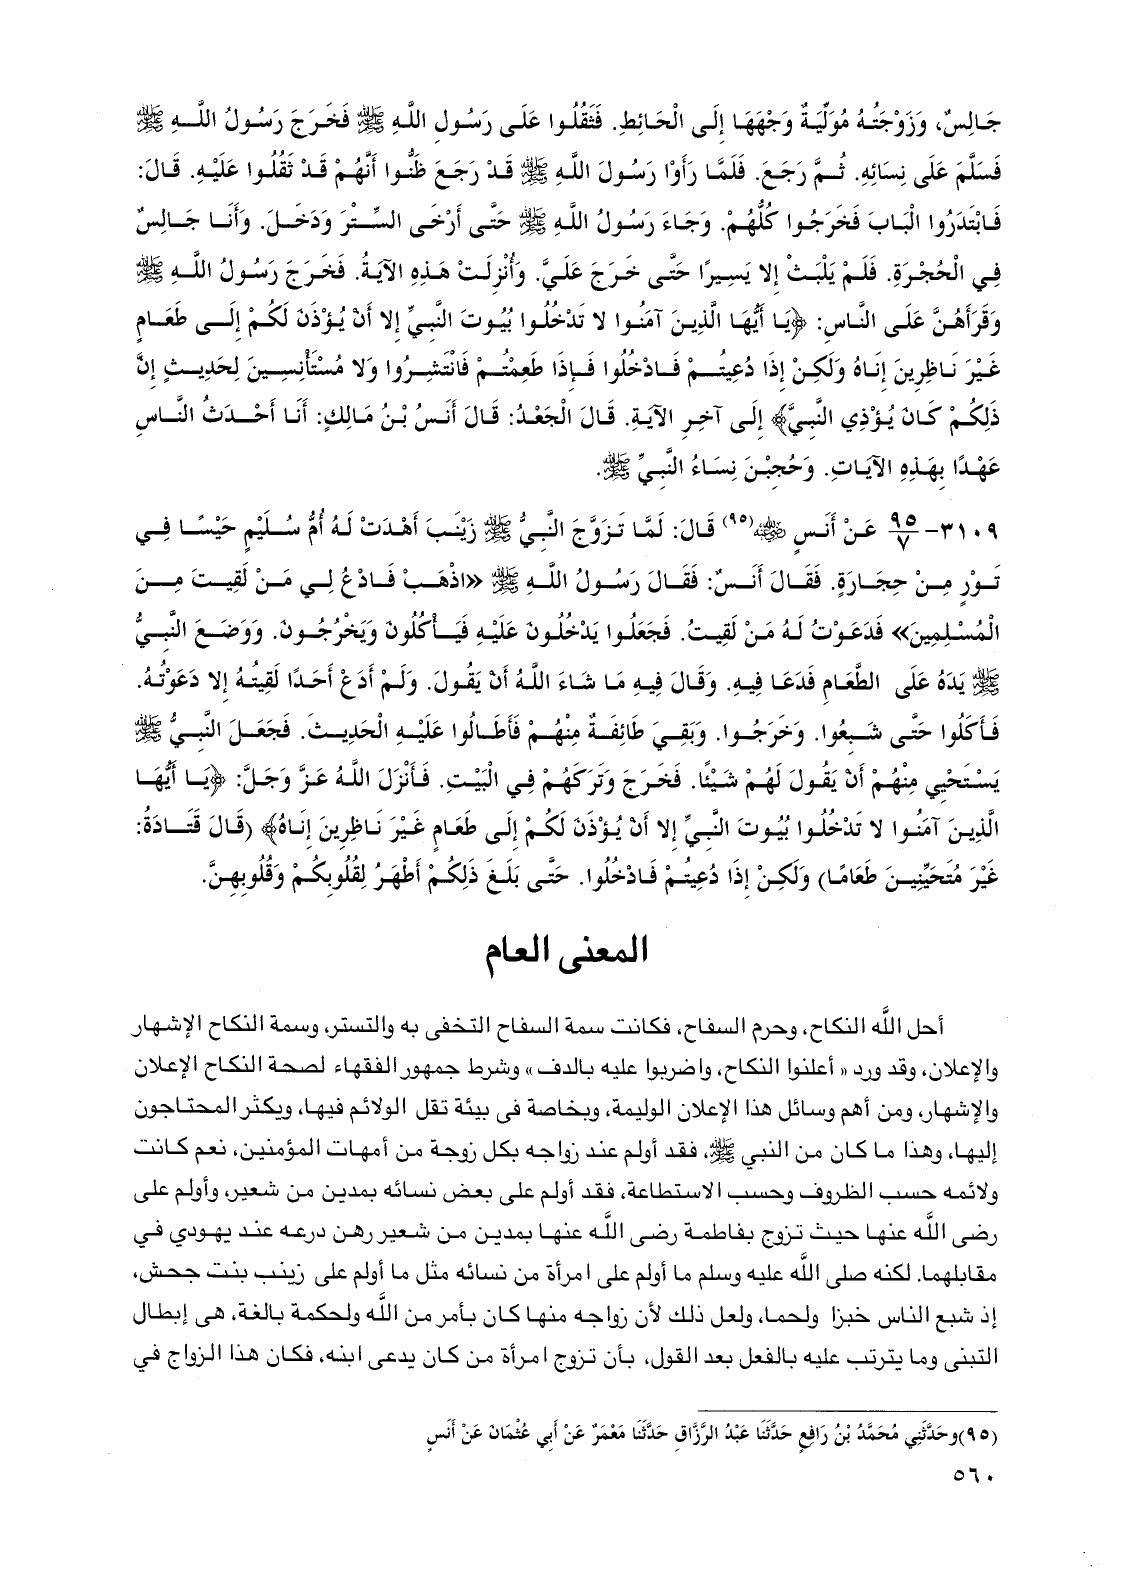 جَالِسٌ، وَزَوْجَتُهُ مُوَلِّيَةٌ وَجْهَهَا إِلَى الْحَائِطِ. فَثَقُلُوا عَلَى رَسُولِ اللَّهِ ﷺ فَخَرَجَ رَسُولُ اللَّهِ ﷺ
فَسَلَّمَ عَلَى نِسَائِهِ. ثُمَّ رَجَعَ. فَلَمَّا رَأَوْا رَسُولَ اللَّهِ ﷺ قَدْ رَجَعَ ظَنُّوا أَنَّهُمْ قَدْ ثَقُلُوا عَلَيْهِ. قَالَ:
فَابْتَدَرُوا الْبَابَ فَخَرَجُوا كُلُّهُمْ. وَجَاءَ رَسُولُ اللَّهِ ﷺ حَتَّى أَرْخَى السِّتْرَ وَدَخَلَ. وَأَنَا جَالِسٌ
فِي الْحُجْرَةِ. فَلَمْ يَلْبَثْ إِلا يَسِيرًا حَتَّى خَرَجَ عَلَيَّ. وَأُنْزِلَتْ هَذِهِ الآيَةُ. فَخَرَجَ رَسُولُ اللَّهِ ﷺ
وَقَرَأَهُنَّ عَلَى النَّاسِ: ﴿يَا أَيُّهَا الَّذِينَ آمَنُوا لا تَدْخُلُوا بُيُوتَ النَّبِيِّ إِلا أَنْ يُؤْذَنَ لَكُمْ إِلَى طَعَامٍ
غَيْرَ نَاظِرِينَ إِنَاهُ وَلَكِنْ إِذَا دُعِيتُمْ فَادْخُلُوا فَإِذَا طَعِمْتُمْ فَانْتَشِرُوا وَلا مُسْتَأْنِسِينَ لِحَدِيثٍ إِنَّ
ذَلِكُمْ كَانَ يُؤْذِي النَّبِيَّ﴾ إِلَى آخِرِ الآيَةِ. قَالَ الْجَعْدُ: قَالَ أَنَسُ بْنُ مَالِكٍ: أَنَا أَحْدَثُ النَّاسِ
عَهْدًا بِهَذِهِ الآيَاتِ. وَحُجِبْنَ نِسَاءُ النَّبِيِّ ﷺ.
٣١٠٩- ٩٥/٧ عَنْ أَنَسٍ رضي الله عنه(٩٥) قَالَ: لَمَّا تَزَوَّجَ النَّبِيُّ ﷺ زَيْنَبَ أَهْدَتْ لَهُ أُمُّ سُلَيْمٍ حَيْسًا فِي
تَوْرٍ مِنْ حِجَارَةٍ. فَقَالَ أَنَسٌ: فَقَالَ رَسُولُ اللَّهِ ﷺ «اذْهَبْ فَادْعُ لِي مَنْ لَقِيتَ مِنَ
الْمُسْلِمِينَ» فَدَعَوْتُ لَهُ مَنْ لَقِيتُ. فَجَعَلُوا يَدْخُلُونَ عَلَيْهِ فَيَأْكُلُونَ وَيَخْرُجُونَ. وَوَضَعَ النَّبِيُّ
ﷺ يَدَهُ عَلَى الطَّعَامِ فَدَعَا فِيهِ. وَقَالَ فِيهِ مَا شَاءَ اللَّهُ أَنْ يَقُولَ. وَلَمْ أَدَعْ أَحَدًا لَقِيتُهُ إِلا دَعَوْتُهُ.
فَأَكَلُوا حَتَّى شَبِعُوا. وَخَرَجُوا. وَبَقِيَ طَائِفَةٌ مِنْهُمْ فَأَطَالُوا عَلَيْهِ الْحَدِيثَ. فَجَعَلَ النَّبِيُّ ﷺ
يَسْتَحْيِي مِنْهُمْ أَنْ يَقُولَ لَهُمْ شَيْئًا. فَخَرَجَ وَتَرَكَهُمْ فِي الْبَيْتِ. فَأَنْزَلَ اللَّهُ عَزَّ وَجَلَّ: ﴿يَا أَيُّهَا
الَّذِينَ آمَنُوا لا تَدْخُلُوا بُيُوتَ النَّبِيِّ إِلا أَنْ يُؤْذَنَ لَكُمْ إِلَى طَعَامٍ غَيْرَ نَاظِرِينَ إِنَاهُ﴾ (قَالَ قَتَادَةُ:
غَيْرَ مُتَحَيِّنِينَ طَعَامًا) وَلَكِنْ إِذَا دُعِيتُمْ فَادْخُلُوا. حَتَّى بَلَغَ ذَلِكُمْ أَطْهَرُ لِقُلُوبِكُمْ وَقُلُوبِهِنَّ.
المعنى العام
أحل اللَّه النكاح، وحرم السفاح، فكانت سمة السفاح التخفى به والتستر، وسمة النكاح الإشهار
والإعلان، وقد ورد « أعلنوا النكاح، واضربوا عليه بالدف » وشرط جمهور الفقهاء لصحة النكاح الإعلان
والإشهار، ومن أهم وسائل هذا الإعلان الوليمة، وبخاصة فى بيئة تقل الولائم فيها، ويكثر المحتاجون
إليها، وهذا ما كان من النبي ﷺ، فقد أولم عند زواجه بكل زوجة من أمهات المؤمنين، نعم كانت
ولائمه حسب الظروف وحسب الاستطاعة، فقد أولم على بعض نسائه بمدين من شعير، وأولم على
رضى اللَّه عنها حيث تزوج بفاطمة رضى اللَّه عنها بمدين من شعير رهن درعه عند يهودي في
مقابلهما. لكنه صلى اللَّه عليه وسلم ما أولم على امرأة من نسائه مثل ما أولم على زينب بنت جحش،
إذ شبع الناس خبزا ولحما، ولعل ذلك لأن زواجه منها كان بأمر من اللَّه ولحكمة بالغة، هى إبطال
التبنى وما يترتب عليه بالفعل بعد القول، بأن تزوج امرأة من كان يدعى ابنه، فكان هذا الزواج في
(٩٥)وحَدَّثَنِي مُحَمَّدُ بْنُ رَافِعٍ حَدَّثَنَا عَبْدُ الرَّزَّاقِ حَدَّثَنَا مَعْمَرٌ عَنْ أَبِي عُثْمَانَ عَنْ أَنَسٍ
٥٦٠